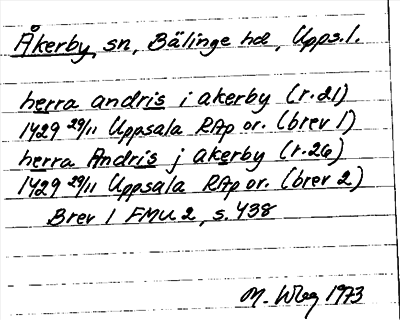 Åkerby, sn, Bälinge hd, Upps.l.
herra andris i akerby (r.21)
1429 29/11 Uppsala RAp or. (brev 1)
herra Andris j akerby (r.26)
1429 29/11 Uppsala RAp or. (brev 2)
Brev 1 FMU 2, s. 438
M. 1973